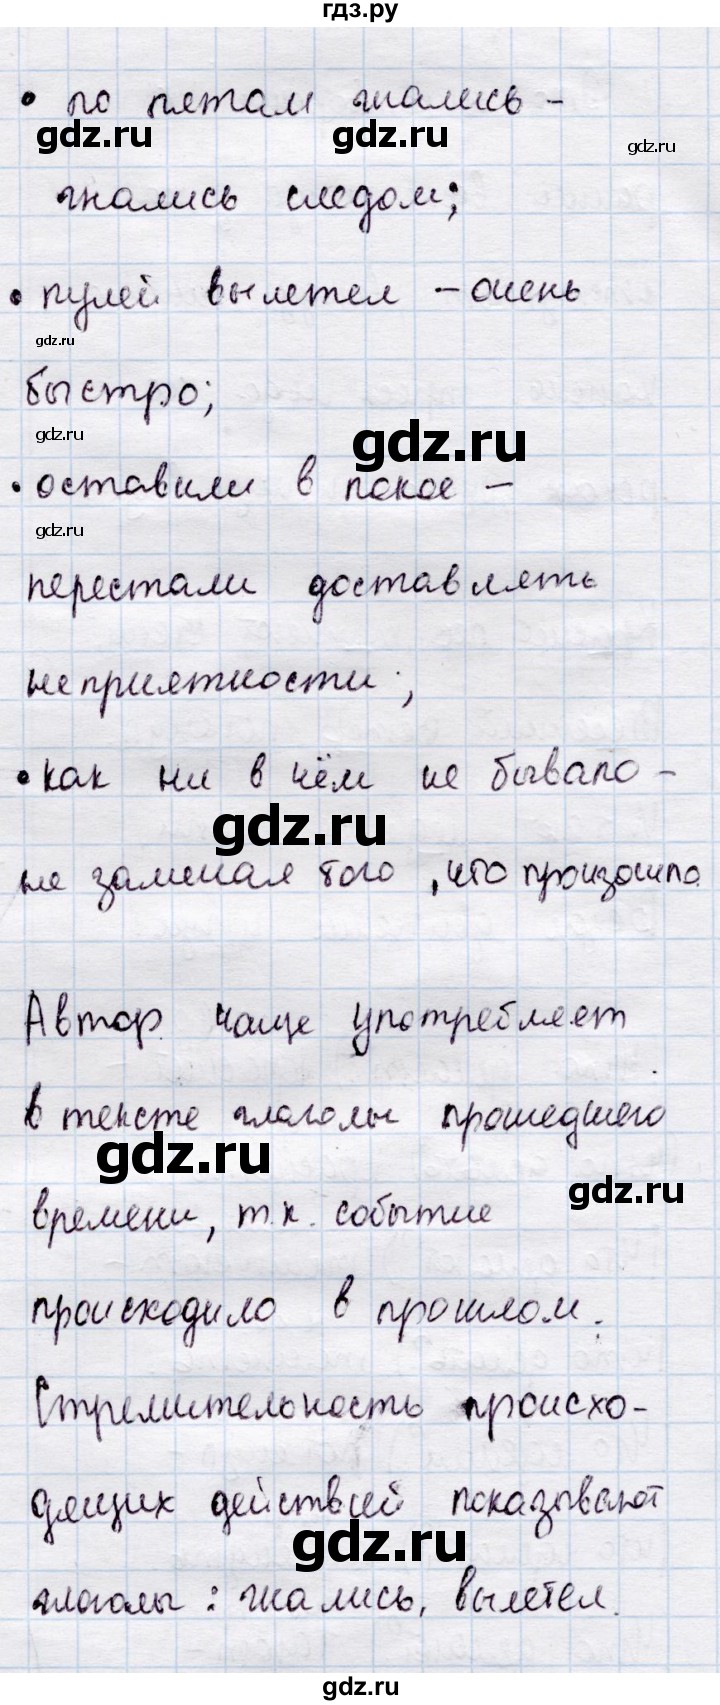 гдз.ру
• по пятам гнались –
gdz.ru gdz.ru gdz.ru
гнались следом;
• пулей вылетел – очень
gdz.ru
быстро;
gdz.ru gdz.ru
• оставили в покое –
gdz.ru
перестали доставлять
неприятности;
• как ни в чём не бывало –
gdz.ru
не замечая того, что произошло.
Автор чаще употребляет
в тексте глаголы прошедшего
gdz.ru gdz.ru
времени, т.к. событие
происходило в прошлом.
Стремительность происхо-
дящих действий показывают
gdz.ru
глаголы: гнались, вылетел.
gdz.ru